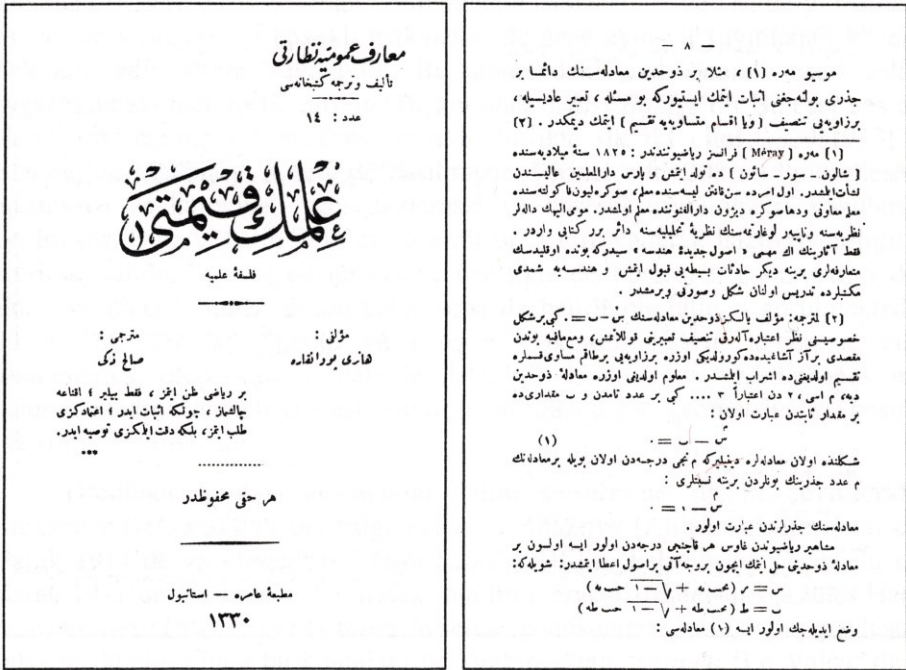 معارف عمومیه نظارتی
تألیف و ترجمه کتبخانه‌سی
عدد : ١٤
علمك قیمتی
فلسفۀ علمیه
مؤلفی :
هانری پوروانقاره
مترجمی :
صالح زکی
بر ریاضی ظن ایتمز ، فقط بیلیر ؛ اقناعه
چالیشماز ، چونکه اثبات ایدر ؛ اعتمادکزی
طلب ایتمز ، بلکه دقت ایتمکزی توصیه ایدر.
***
هر حقی محفوظدر
مطبعۀ عامره — استانبول
١٣٣٠
— ٨ —
موسیو مه‌ره [١] ، مثلا بر ذوحدین معادله‌سنك دائما بر
جذری بولنه‌جغنی اثبات ایتمك ایستیورکه بو مسئله ، تعبیر عادیسیله ،
بر زاویه‌یی تنصیف [ ویا اقسام متساویه‌یه تقسیم ] ایتمك دیمکدر . [٢]
[١] مه‌ره [ Méray ] فرانسز ریاضیونندندر : ١٨٣٥ سنۀ میلادیه‌سنده
[ شالون - سور - سائون ] ده تولد ایتمش و پارس دارالمعلمین عالیسندن
نشأت ایلمشدر . اول امرده سن‌قانتن لیسه‌سنده معلم ، صوکره لیون فاکولته‌سنده
معلم معاونی ودها صوکره دیژون دارالفنوننده معلم اولمشدر . مومی الیهك دالهلر
نظریه‌سنه وناپیه‌ر لوغارتمه‌سنك نظریۀ تحلیلیه‌سنه دائر برر کتابی واردر .
فقط آثارینك اك مهمی « اصول جدیدۀ هندسه » سیدرکه بونده اوقلیدسك
متعارفه‌لری یرینه دیگر حادثات بسیطه‌یی قبول ایتمش و هندسه‌یه شمدی
مکتبلرده تدریس اولنان شکل وصورتی ویرمشدر .
[٢] لمترجه : مؤلف یالکز ذوحدین معادله‌سنك س٢ — ب = ٠ کبی بر شکل
خصوصیسی نظر اعتباره آله‌رق تنصیف تعبیرینی قوللانمش ، ومع‌مافیه بوندن
مقصدی براز آشاغیده‌ده کورولدیکی اوزره بر زاویه‌یی برطاقم مساوی قسملره
تقسیم اولدیغنی‌ده اشراب ایلمشدر . معلوم اولدیغی اوزره معادلۀ ذوحدین
دیه ، م اسی ، ٢ دن اعتباراً ٣ .... کبی بر عدد تامدن و ب مقداری‌ده
بر مقدار ثابتدن عبارت اولان :
سم — ب = ٠ (١)
شکلنده اولان معادله‌لره دینلیرکه م نجی درجه‌دن اولان بویله بر معادله‌نك
م عدد جذرینك بونلردن برینه نسبتلری :
سم — ١ = ٠
معادله‌سنك جذرلرندن عبارت اولور .
مشاهیر ریاضیوندن غاوس هر قاچنجی درجه‌دن اولور ایسه اولسون بر
معادلۀ ذوحدینی حل ایتمك ایچون بروجه آتی براصول اعطا ایتمشدر ; شویله‌که :
وضع ایدیله‌جك اولور ایسه (١) معادله‌سی :